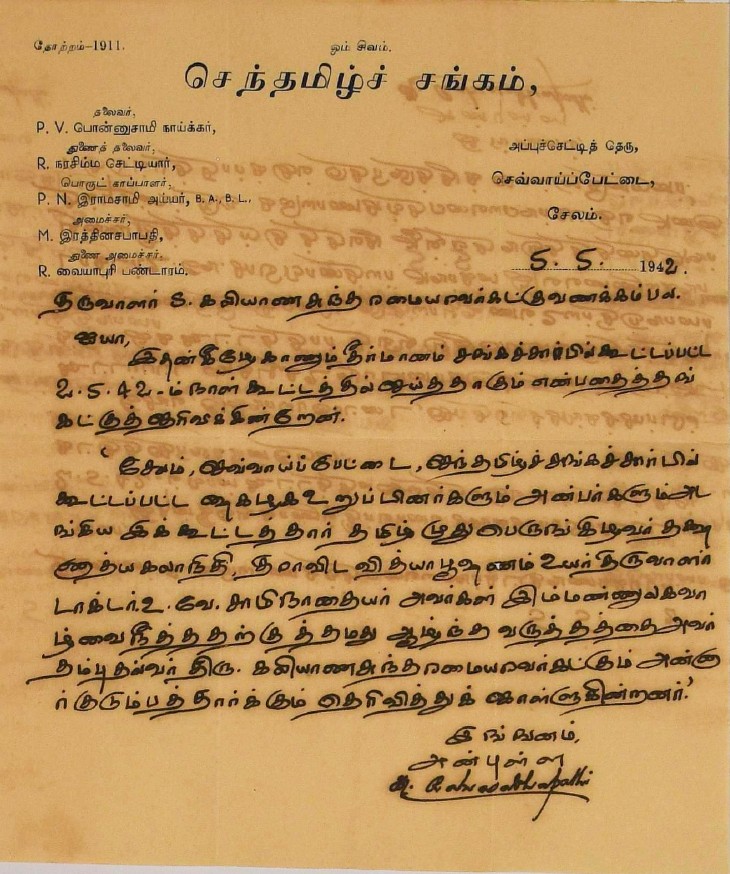 தோற்றம்—1911.
ஓம் சிவம்.
செந்தமிழ்ச் சங்கம்,
தலைவர்,
P. V. பொன்னுசாமி நாய்க்கர்,
துணைத் தலைவர்,
R. நரசிம்ம செட்டியார்,
பொருட் காப்பாளர்,
P. N. இராமசாமி அய்யர், B. A., B. L.,
அமைச்சர்,
M. இரத்தினசபாபதி,
துணை அமைச்சர்.
R. வையாபுரி பண்டாரம்.
அப்புச்செட்டித் தெரு,
செவ்வாய்ப்பேட்டை,
சேலம்.
5. 5. 1942.
திருவாளர் S. கலியாணசுந்தரமையரவர்கட்கு வணக்கம் பல.
ஐயா,
இதன்கீழே காணும் தீர்மானம் சங்கச்சார்பில் கூட்டப்பட்ட
2.5.42-ம் நாள் கூட்டத்தில் செய்ததாகும் என்பதைத் தங்
கட்குத் தெரிவிக்கின்றேன்.
'சேலம், செவ்வாய்ப்பேட்டை, செந்தமிழ்ச் சங்கச்சார்பில்
கூட்டப்பட்ட கழக உறுப்பினர்களும் அன்பர்களும் அட
ங்கிய இக்கூட்டத்தார் தமிழ் முதுபெருங் கிழவர் தக்ஷி
ணாத்ய கலாநிதி, திராவிட வித்யாபூஷணம் உயர்திருவாளர்
டாக்டர். உ. வே. சாமிநாதையர் அவர்கள் இம்மண்ணுலகவா
ழ்வை நீத்ததற்குத் தமது ஆழ்ந்த வருத்தத்தை அவர்
தம் புதல்வர் திரு. கலியாணசுந்தரமையரவர்கட்கும் அன்னா
ர் குடும்பத்தார்க்கும் தெரிவித்துக் கொள்ளுகின்றனர்.'
இங்ஙனம்,
அன்புள்ள
M. Rathnasabhapathi